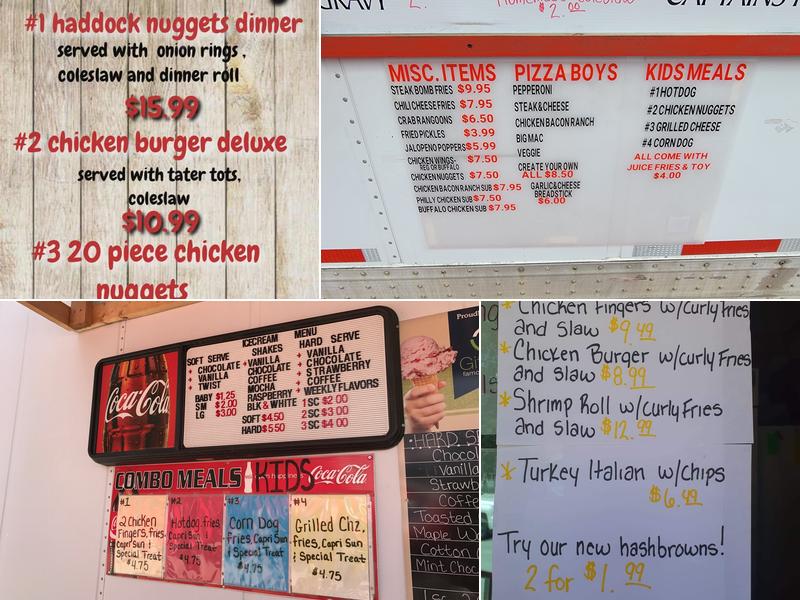 #1 haddock nuggets dinner
served with onion rings,
coleslaw and dinner roll
$15.99
#2 chicken burger deluxe
served with tater tots,
coleslaw
$10.99
#3 20 piece chicken
nuggets
GRAVY
$2.00
MISC. ITEMS
STEAK BOMB FRIES $9.95
CHILI CHEESE FRIES $7.95
CRAB RANGOONS $6.50
FRIED PICKLES $3.99
JALOPENO POPPERS $5.99
CHICKEN WINGS- $7.50
REG OR BUFFALO
CHICKEN NUGGETS $7.50
CHICKEN BACON RANCH SUB $7.95
PHILLY CHICKEN SUB $7.50
BUFFALO CHICKEN SUB $7.95
PIZZA BOYS
PEPPERONI
STEAK & CHEESE
CHICKEN BACON RANCH
BIG MAC
VEGGIE
CREATE YOUR OWN
ALL $8.50
GARLIC & CHEESE
BREADSTICK
$6.00
KIDS MEALS
#1 HOTDOG
#2 CHICKEN NUGGETS
#3 GRILLED CHEESE
#4 CORN DOG
ALL COME WITH
JUICE FRIES & TOY
$4.00
Coca-Cola
ICECREAM MENU
SOFT SERVE
CHOCOLATE
VANILLA
TWIST
BABY $1.25
SM $2.00
LG $3.00
SHAKES
VANILLA
CHOCOLATE
COFFEE
MOCHA
RASPBERRY
BLK & WHITE
SOFT $4.50
HARD $5.50
HARD SERVE
VANILLA
CHOCOLATE
STRAWBERRY
COFFEE
WEEKLY FLAVORS
1 SC $2.00
2 SC $3.00
3 SC $4.00
COMBO MEALS KIDS Coca-Cola
#1
2 Chicken
Fingers, fries,
Capri Sun &
Special Treat
$4.75
#2
Hotdog, fries
Capri Sun &
Special Treat
$4.75
#3
Corn Dog
Fries, Capri Sun
& Special Treat
$4.75
#4
Grilled Chz,
Fries, Capri Sun
& Special Treat
$4.75
Proud
Gi
famo
HARD S
Choco
Vanilla
Strawb
Coffe
Toasted
Maple W
Cotton
Mint Choc
* Chicken Fingers w/curly fries
and slaw $9.49
* Chicken Burger w/curly Fries
and slaw $8.99
* Shrimp Roll w/curly Fries
and slaw $12.99
* Turkey Italian w/chips
$6.49
Try our new hashbrowns!
2 for $1.99